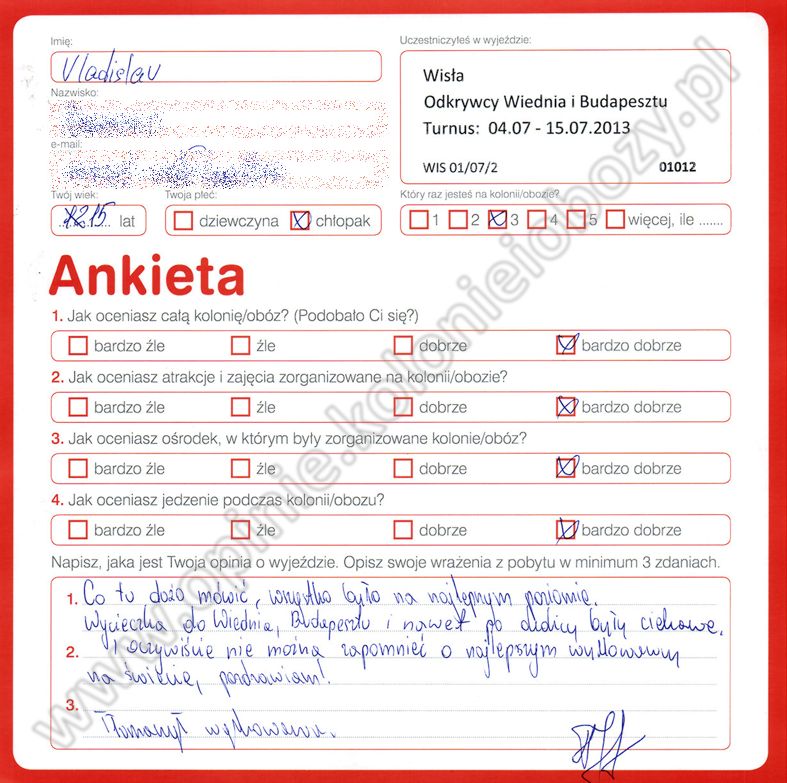 Imię:
Vladislav
Nazwisko:
e-mail:
Uczestniczyłeś w wyjeździe:
Wisła
Odkrywcy Wiednia i Budapesztu
Turnus: 04.07 - 15.07.2013
WIS 01/07/2 01012
Twój wiek:
15 lat
Twoja płeć:
dziewczyna chłopak
Który raz jesteś na kolonii/obozie?
1 2 3 4 5 więcej, ile .......
Ankieta
1. Jak oceniasz całą kolonię/obóz? (Podobało Ci się?)
bardzo źle źle dobrze bardzo dobrze
2. Jak oceniasz atrakcje i zajęcia zorganizowane na kolonii/obozie?
bardzo źle źle dobrze bardzo dobrze
3. Jak oceniasz ośrodek, w którym były zorganizowane kolonie/obóz?
bardzo źle źle dobrze bardzo dobrze
4. Jak oceniasz jedzenie podczas kolonii/obozu?
bardzo źle źle dobrze bardzo dobrze
Napisz, jaka jest Twoja opinia o wyjeździe. Opisz swoje wrażenia z pobytu w minimum 3 zdaniach.
1. Co tu dużo mówić, wszystko było na najlepszym poziomie.
Wycieczka do Wiednia, Budapesztu i nawet po okolicy były ciekawe.
2. I oczywiście nie można zapomnieć o najlepszym wychowawcy
na świecie, pozdrawiam!
3.
wychowawca.
www.opinie.kolonieiobozy.pl